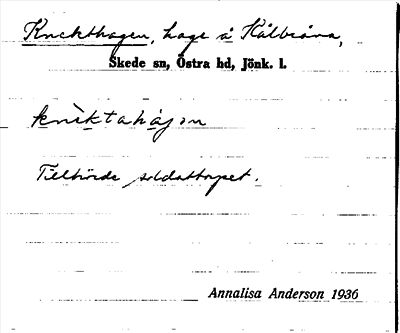 Knekthagen, hage å Kålbråna,
Skede sn, Östra hd, Jönk. l.
knìktahágɘn
Tillhörde soldattorpet.
Annalisa Anderson 1936